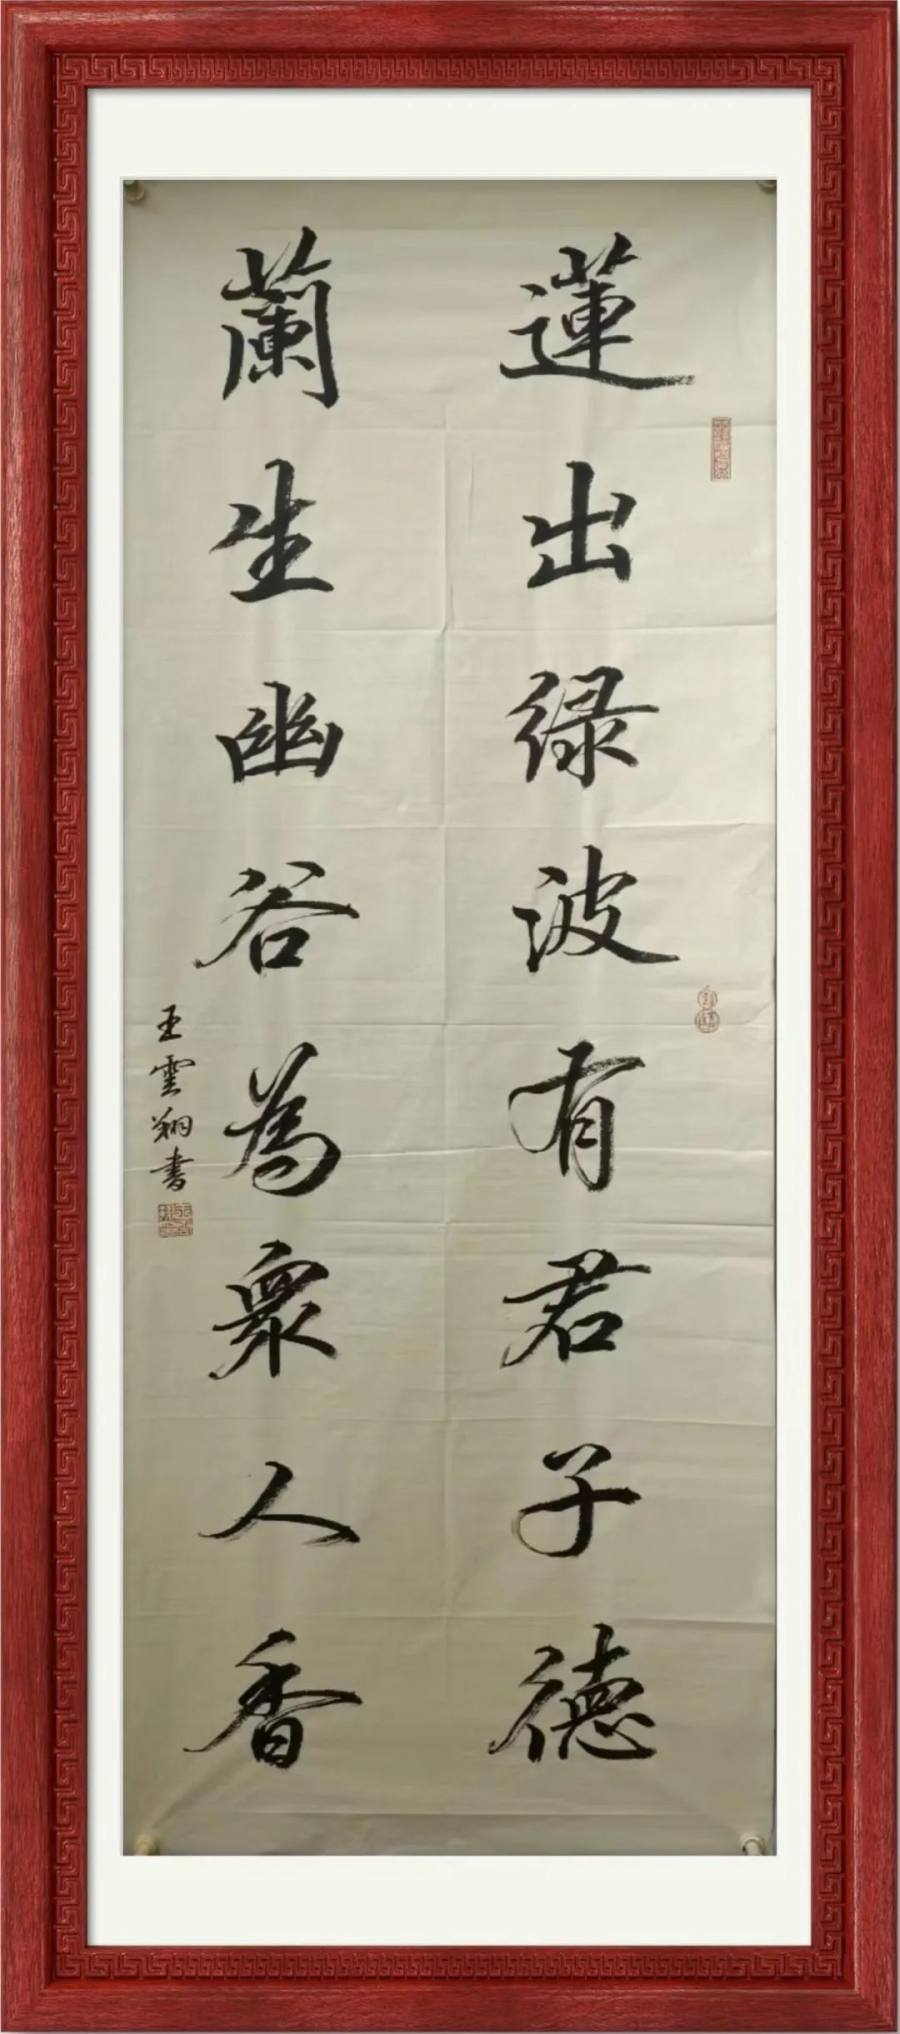 蓮出绿波有君子德
蘭生幽谷為衆人香
王雲翔書